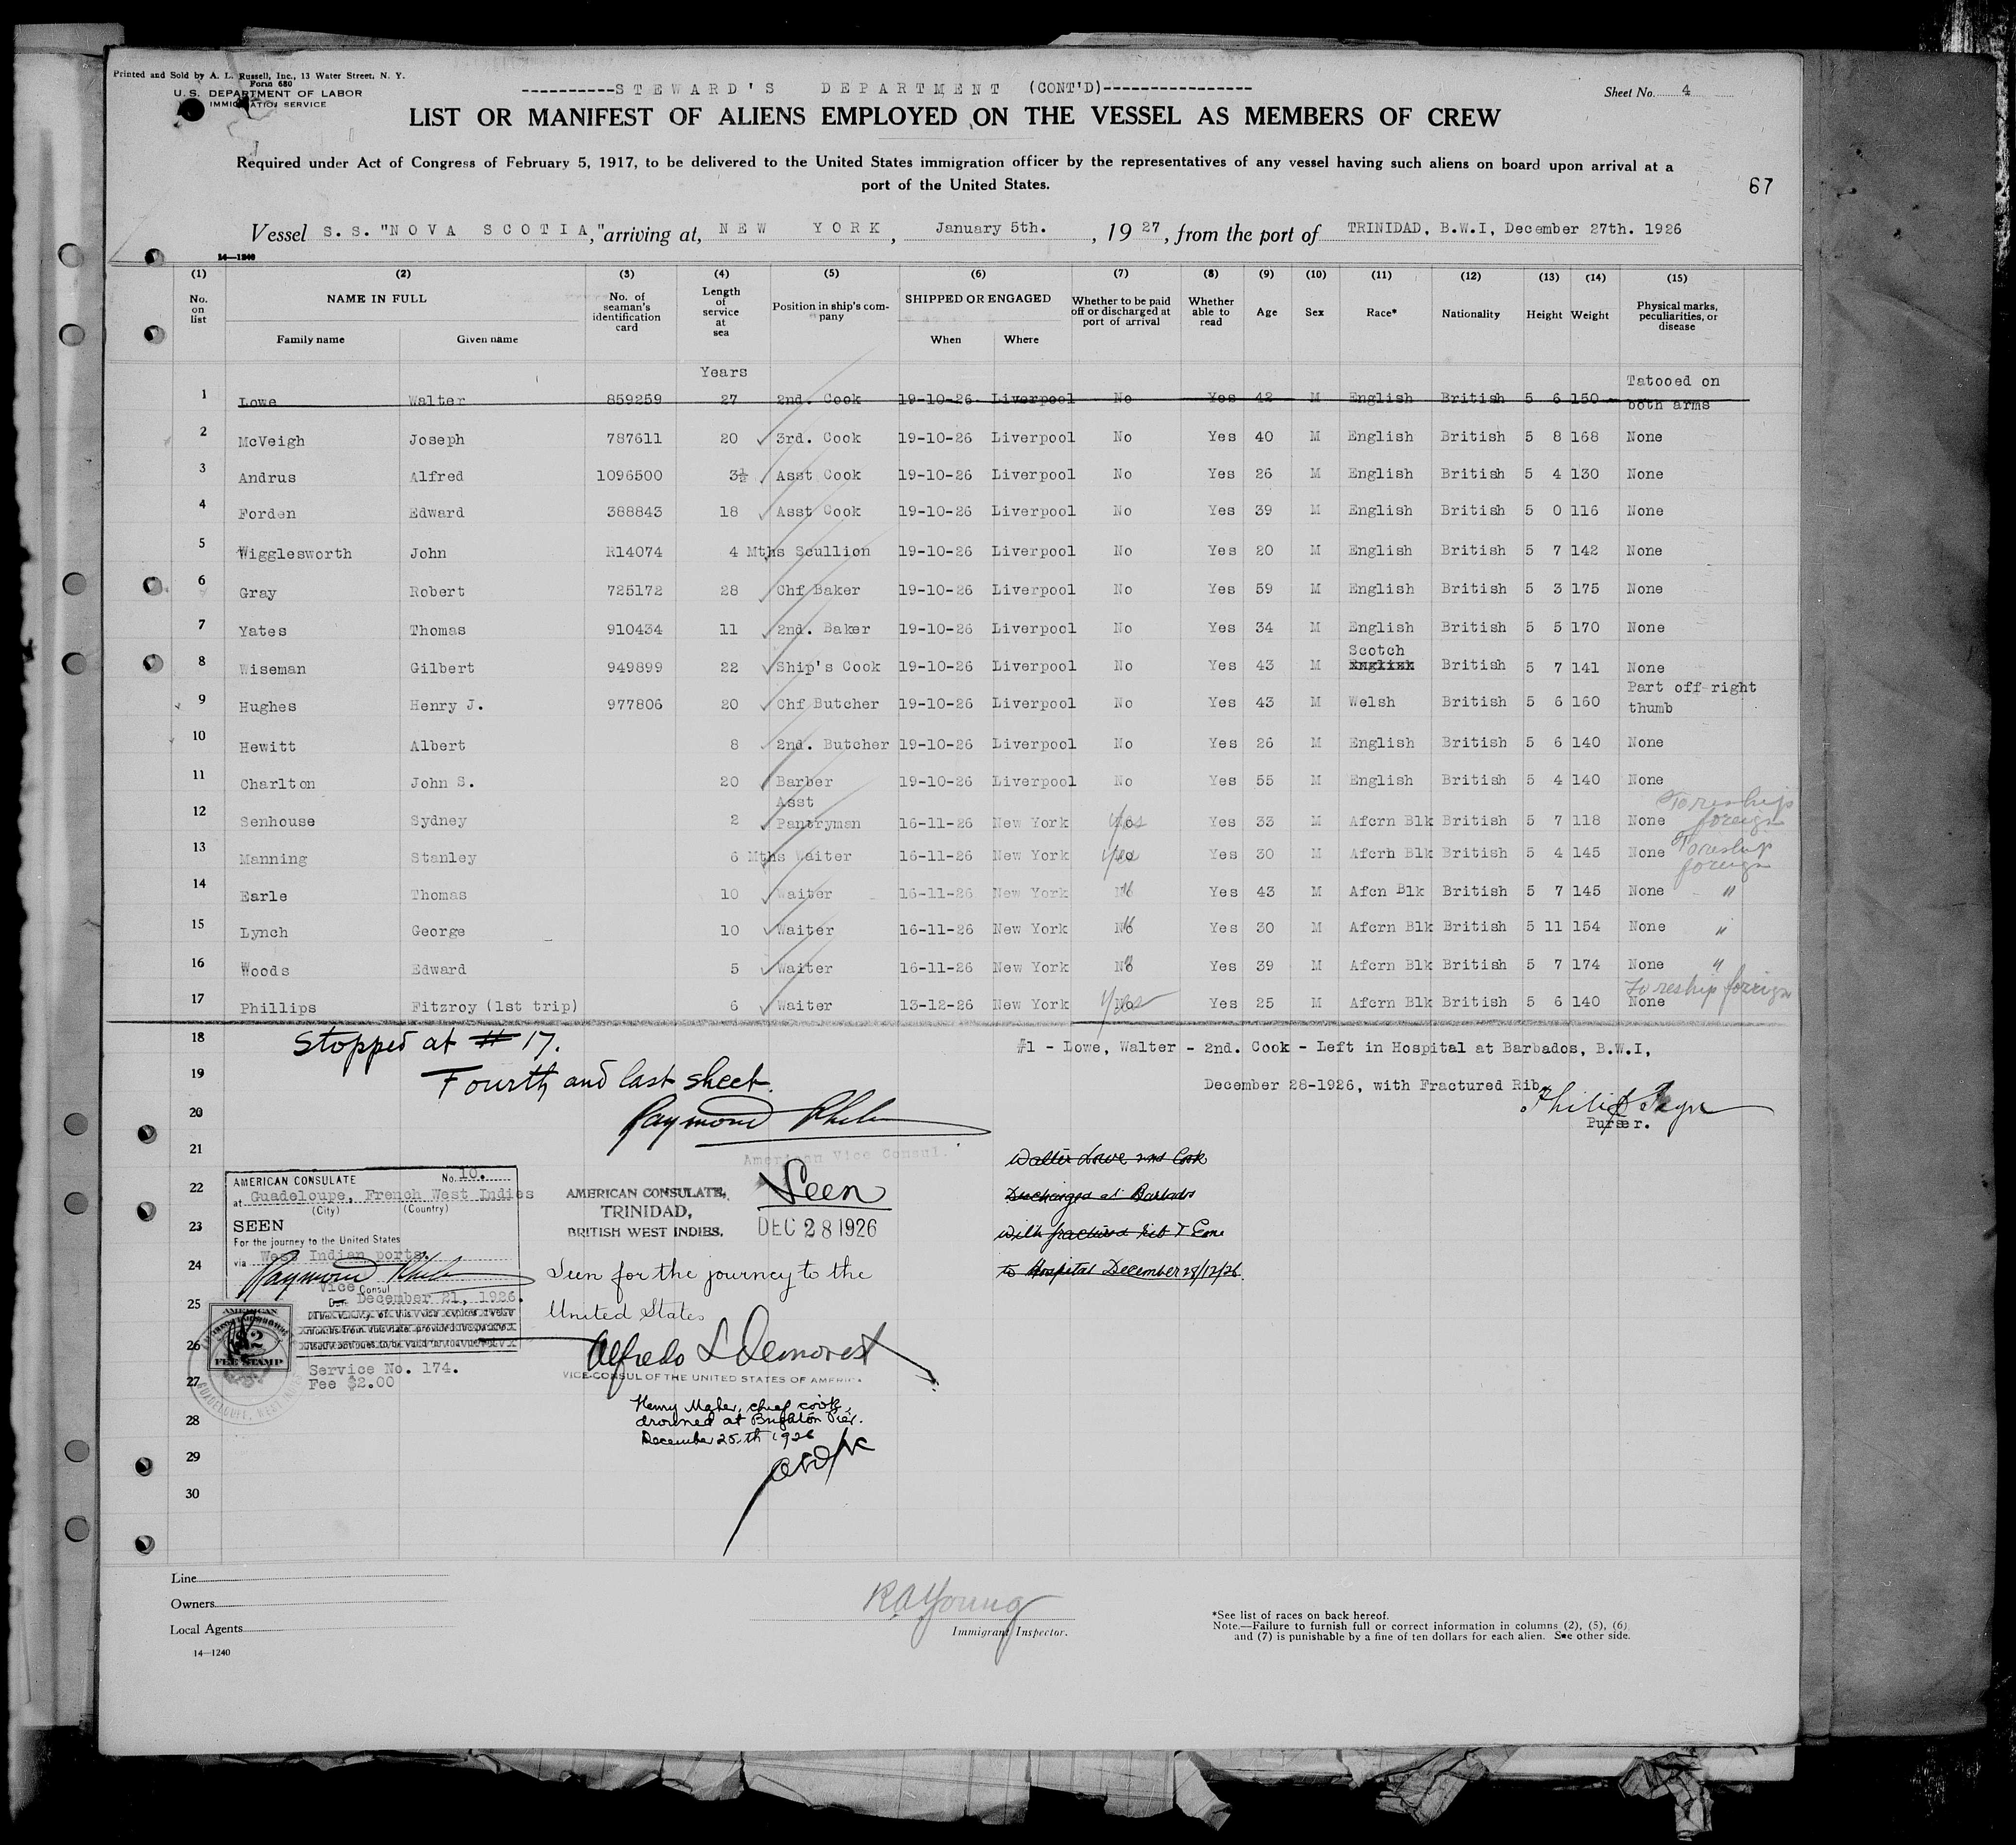 Printed and Sold by A. L. Russell, Inc., 13 Water Street, N. Y.
Form 680
U. S. DEPARTMENT OF LABOR
IMMIGRATION SERVICE
----------STEWARD'S DEPARTMENT (CONT'D)----------------
Sheet No. 4
LIST OR MANIFEST OF ALIENS EMPLOYED ON THE VESSEL AS MEMBERS OF CREW
Required under Act of Congress of February 5, 1917, to be delivered to the United States immigration officer by the representatives of any vessel having such aliens on board upon arrival at a
port of the United States.
67
Vessel S.S. "NOVA SCOTIA," arriving at, NEW YORK, January 5th., 1927, from the port of TRINIDAD, B.W.I, December 27th. 1926
14—1240
(1) (2) (3) (4) (5) (6) (7) (8) (9) (10) (11) (12) (13) (14) (15)
No. on list NAME IN FULL Family name Given name No. of seaman's identification card Length of service at sea Position in ship's company SHIPPED OR ENGAGED When Where Whether to be paid off or discharged at port of arrival Whether able to read Age Sex Race* Nationality Height Weight Physical marks, peculiarities, or disease
Years
1 Lowe Walter 859259 27 2nd. Cook 19-10-26 Liverpool No Yes 42 M English British 5 6 150 Tatooed on both arms
2 McVeigh Joseph 787611 20 3rd. Cook 19-10-26 Liverpool No Yes 40 M English British 5 8 168 None
3 Andrus Alfred 1096500 3½ Asst Cook 19-10-26 Liverpool No Yes 26 M English British 5 4 130 None
4 Forden Edward 388843 18 Asst Cook 19-10-26 Liverpool No Yes 39 M English British 5 0 116 None
5 Wigglesworth John R14074 4 Mths Scullion 19-10-26 Liverpool No Yes 20 M English British 5 7 142 None
6 Gray Robert 725172 28 Chf Baker 19-10-26 Liverpool No Yes 59 M English British 5 3 175 None
7 Yates Thomas 910434 11 2nd. Baker 19-10-26 Liverpool No Yes 34 M English British 5 5 170 None
8 Wiseman Gilbert 949899 22 Ship's Cook 19-10-26 Liverpool No Yes 43 M Scotch English British 5 7 141 None
9 Hughes Henry J. 977806 20 Chf Butcher 19-10-26 Liverpool No Yes 43 M Welsh British 5 6 160 Part off right thumb
10 Hewitt Albert 8 2nd. Butcher 19-10-26 Liverpool No Yes 26 M English British 5 6 140 None
11 Charlton John S. 20 Barber 19-10-26 Liverpool No Yes 55 M English British 5 4 140 None
12 Senhouse Sydney 2 Asst Pantryman 16-11-26 New York Yes Yes 33 M Afcrn Blk British 5 7 118 None To reship foreign
13 Manning Stanley 6 Mths Waiter 16-11-26 New York Yes Yes 30 M Afcrn Blk British 5 4 145 None To reship foreign
14 Earle Thomas 10 Waiter 16-11-26 New York No Yes 43 M Afcn Blk British 5 7 145 None "
15 Lynch George 10 Waiter 16-11-26 New York No Yes 30 M Afcrn Blk British 5 11 154 None "
16 Woods Edward 5 Waiter 16-11-26 New York No Yes 39 M Afcrn Blk British 5 7 174 None "
17 Phillips Fitzroy (1st trip) 6 Waiter 13-12-26 New York Yes Yes 25 M Afcrn Blk British 5 6 140 None To reship foreign
18
19
20
21
22
23
24
25
26
27
28
29
30
Stopped at # 17.
Fourth and last sheet.
Raymond
American Vice Consul.
#1 - Lowe, Walter - 2nd. Cook - Left in Hospital at Barbados, B.W.I,
December 28-1926, with Fractured Rib.
Philip
Purser.
Walter Lowe 2nd Cook
Discharged at Barbados
with fractured rib & Gone
to Hospital December 28/12/26
AMERICAN CONSULATE No. 10.
at Guadeloupe, French West Indies
(City) (Country)
SEEN
For the journey to the United States
via West Indian ports.
Raymond
Vice Consul
Date December 21, 1926.
AMERICAN
$2
FEE STAMP
GUADELOUPE, WEST
Service No. 174.
Fee $2.00
AMERICAN CONSULATE,
TRINIDAD,
BRITISH WEST INDIES.
Seen
DEC 28 1926
Seen for the journey to the
United States
Alfredo L Demorest
VICE-CONSUL OF THE UNITED STATES OF AMERICA
Henry Maher, chief cook,
drowned at Brighton Pier.
December 25th 1926
Line
Owners
Local Agents
14—1240
R.A. Young
Immigrant Inspector.
*See list of races on back hereof.
Note.—Failure to furnish full or correct information in columns (2), (5), (6)
and (7) is punishable by a fine of ten dollars for each alien. See other side.